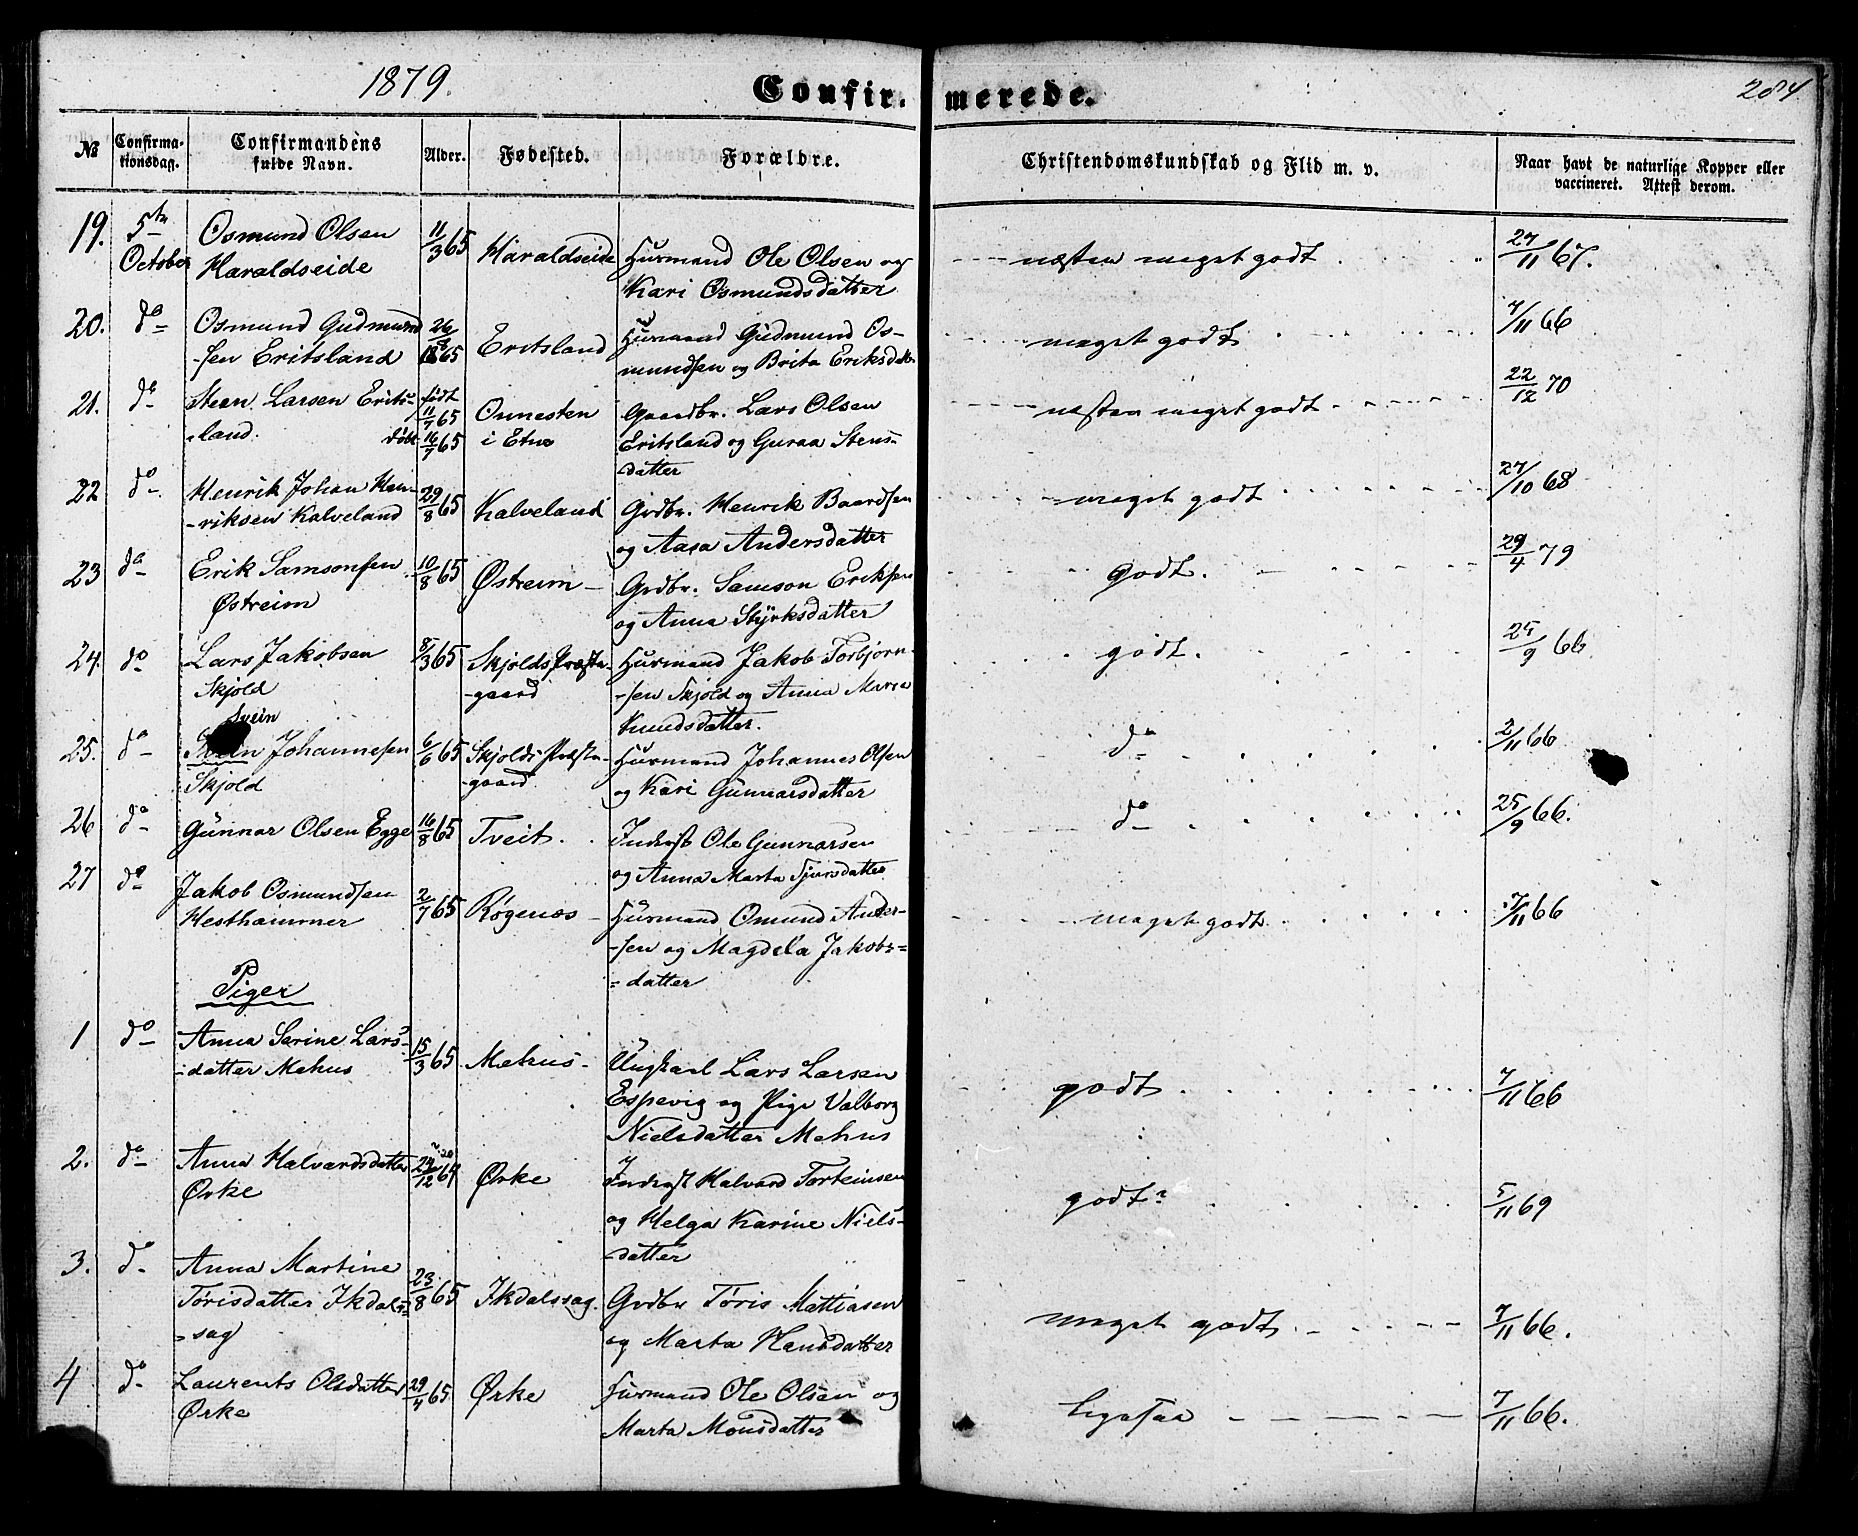 1879.
Confir- merede.
284
№
Confirma-
tionsdag.
Confirmandens
fulde Navn.
Alder.
Fødested.
Forældre.
Christendomskundskab og Flid m. v.
Naar havt de naturlige Kopper eller
vaccineret. Attest derom.
19. 5te Osmund Olsen 11/3 65 Haraldseide Husmand Ole Olsen og næsten meget godt 27/11 67.
October Haraldseide Kari Osmundsdatter
20. do Osmund Gudmund 26/8 Eritsland Husmand Gudmund Os- meget godt 7/11 66
-sen Eritsland 1865 mundsen og Brita Eriksdatter
21. do Steen Larsen Erits- født 11/7 65 Onnesten Gaardbr. Lars Olsen næsten meget godt 22/12 70
-land. døbt 16/7 65 i Etne Eritsland og Guroa Stens-
datter
22 do Henrik Johan Hen- 29/8 65 Kalveland Grdbr. Henrik Baardsen meget godt 27/10 68
-riksen Kalveland og Aasa Andersdatter
23 do Erik Samsonsen 10/8 65 Østreim Grdbr. Samson Eriksen godt. 29/4 79
Østreim og Anna Styrksdatter
24. do Lars Jakobsen 8/3 65 Skjolds Præste- Husmand Jakob Torbjørn- godt. 25/9 66
Skjold -gaard -sen Skjold og Anna Maria
Knudsdatter.
Svein
25. do Svein Johannesen 6/6 65 Skjolds Præste- Husmand Johannes Olsen do 2/11 66
Skjold -gaard og Kari Gunnarsdatter
26 do Gunnar Olsen Egge 16/8 65 Tveit. Inderst Ole Gunnarsen do 25/9 66.
og Anna Marta Sjursdatter
27 do Jakob Osmundsen 2/7 65 Røgenæs Husmand Omund Ander- meget godt. 7/11 66
Hesthammer -sen og Magdela Jakobs-
-datter
Piger
1 do Anna Serine Lars- 15/3 65 Mehus Ungkarl Lars Larsen godt 7/11 66
-datter Mehus Espevig og Pige Valborg
Nielsdatter Mehus
2. do Anna Halvardsdatter 24/12 64 Ørke Inderst Halvard Torteinsen godt 5/11 69
Ørke og Helga Karine Niels-
-datter
3. do Anna Martine 23/8 65 Ikdalssag. Grdbr Tøris Mattiasen meget godt. 7/11 66.
Tørisdatter Ikdals- og Marta Hansdatter
-sag
4 do Laurents Olsdatter 29/4 65 Ørke Husmand Ole Olsen og ligesaa 7/11 66.
Ørke Marta Monsdatter